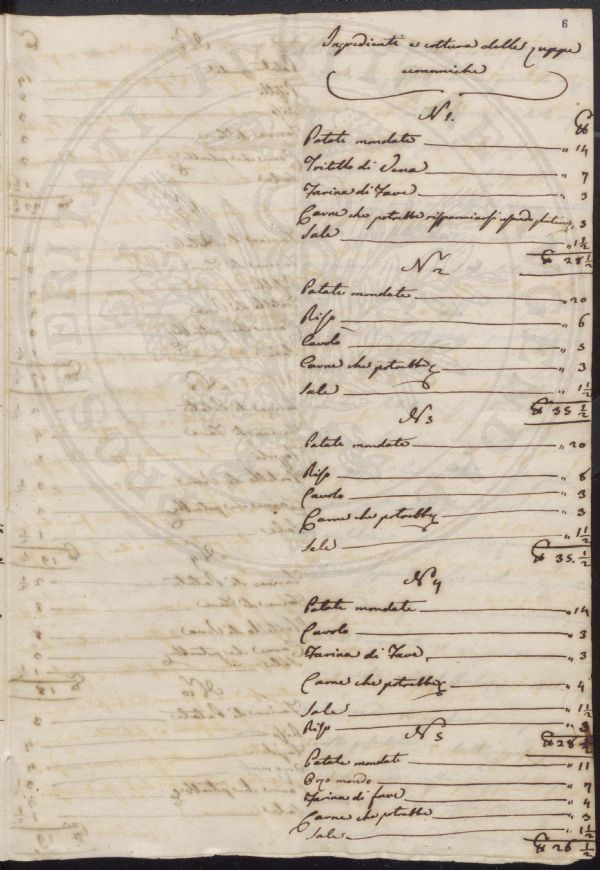 6
Ingredienti e cottura delle zuppe
economiche
N 1.
Patate mondate „ 14
Tritello di Vena „ 7
Farina di Fave „ 3
Carne che potrebbe risparmiarsi „ 3
Sale „ 1 1/2
28 1/2
N 2
Patate mondate „ 20
Riso „ 6
Cavolo „ 5
Carne che potrebbe „ 3
Sale „ 1 1/2
35 1/2
N 3
Patate mondate „ 20
Riso „ 8
Cavolo „ 3
Carne che potrebbe „ 3
Sale „ 1 1/2
35. 1/2
N 4
Patate mondate „ 14
Cavolo „ 3
Farina di Fave, „ 3
Carne che potrebbe „ 4
Sale „ 1 1/2
Riso „ 3
N 5
28 1/2
Patate mondate „ 11
Orzo mondo „ 7
Farina di fave „ 4
Carne che potrebbe „ 3
Sale „ 1 1/2
26 1/2